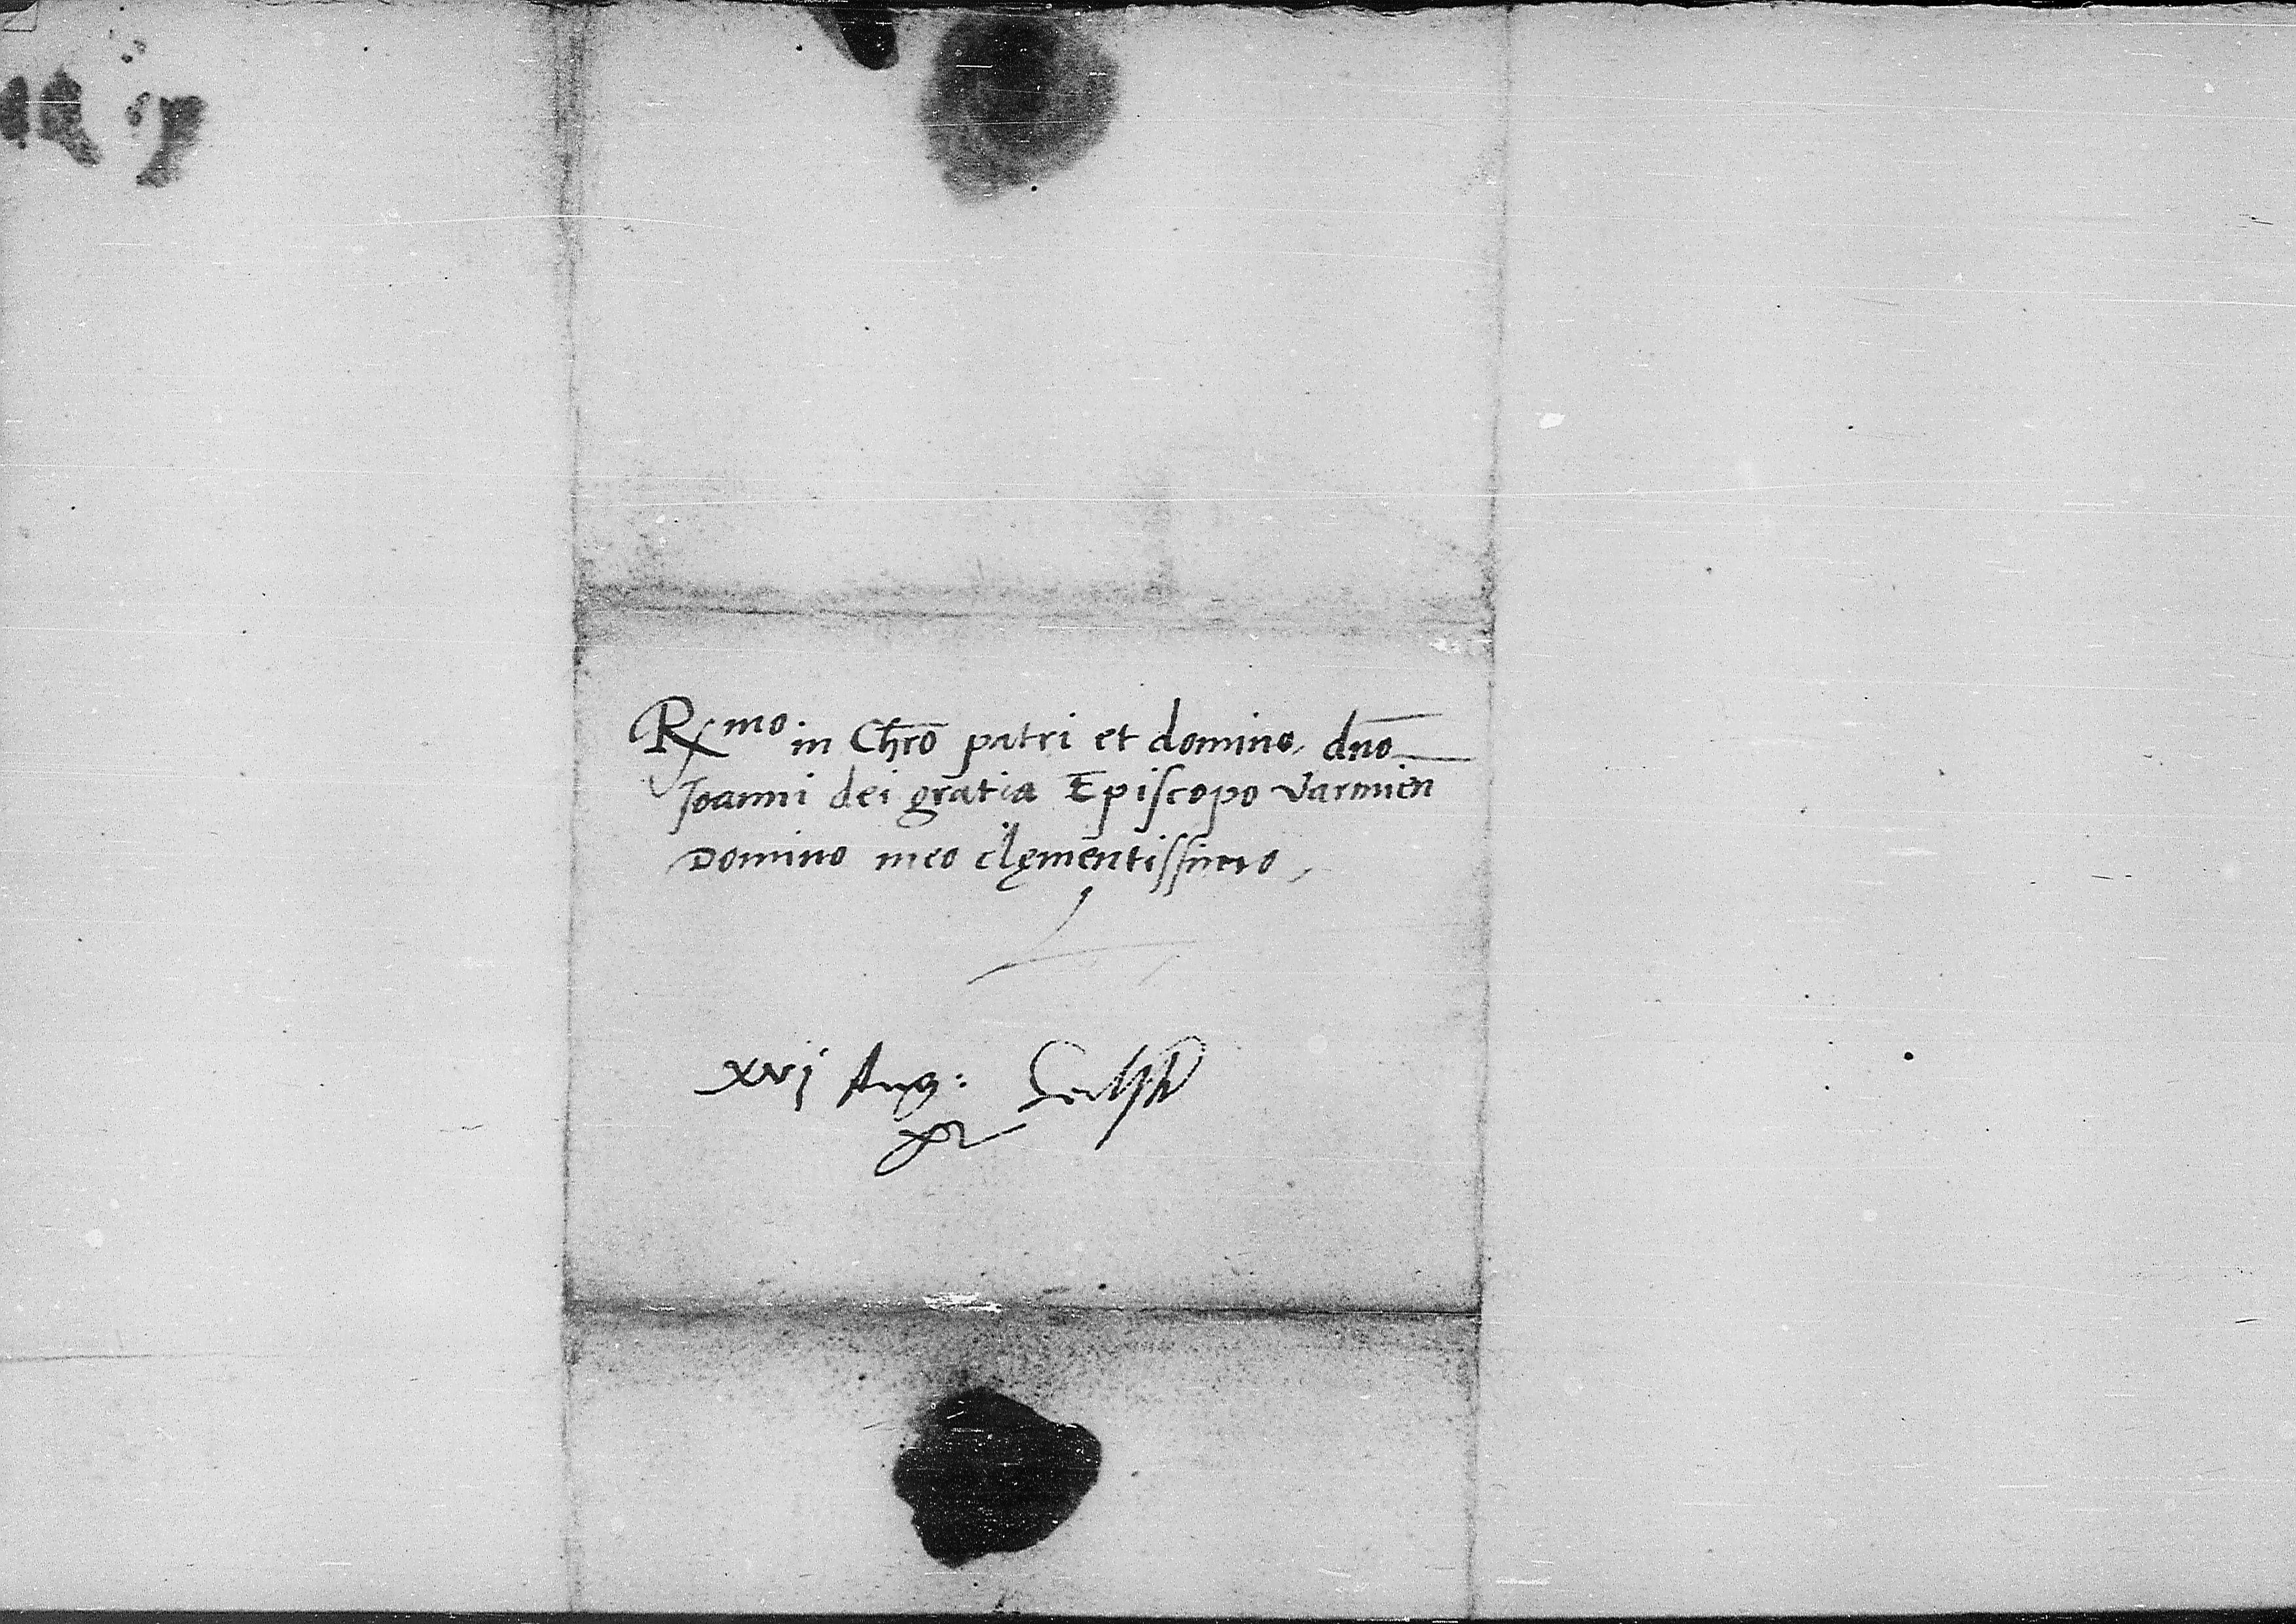 R^mo in Chr̄o patri et domino, dn̄o
Joanni dei gratia Episcopo Varmien̄
Domino meo clęmentissimo,
xvj Aug: